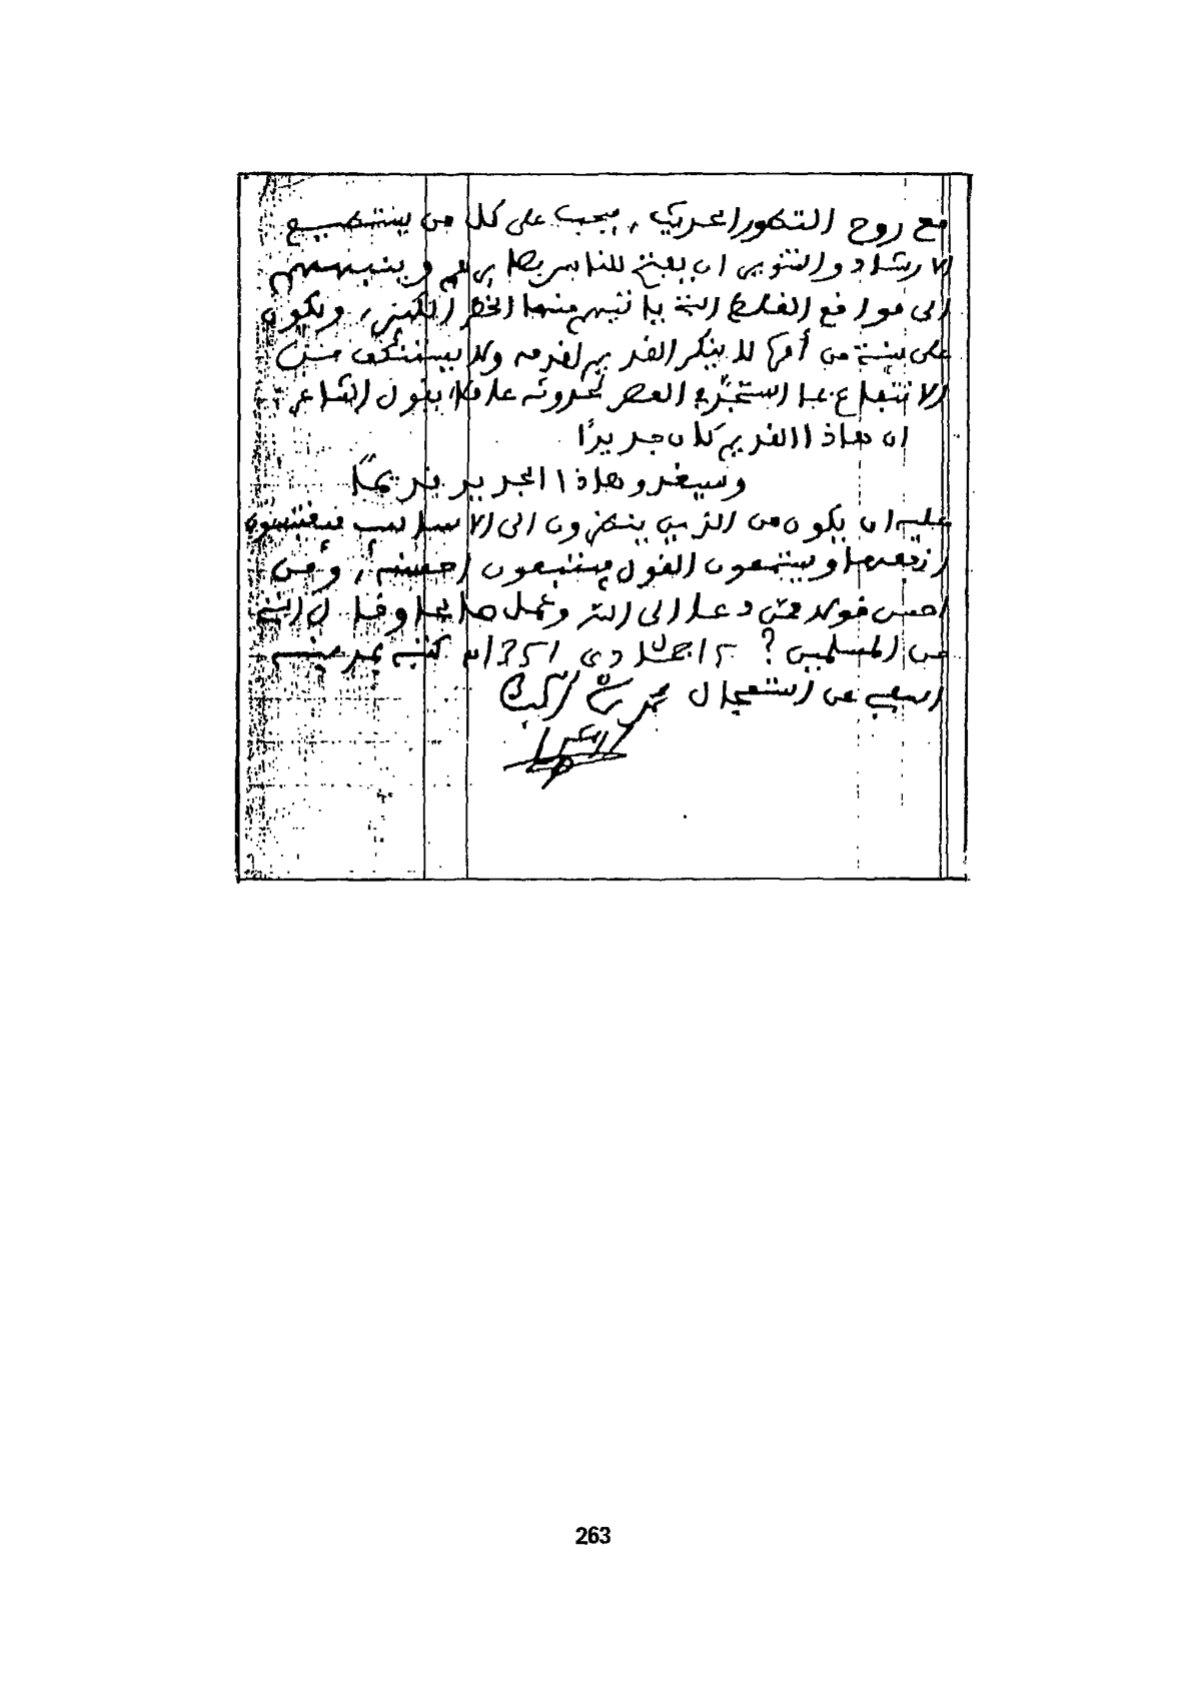 مع روح التطور الحديث، يجب على كل من يستطيع
الارشاد والتنوير ان يفتح للناس بصائرهم وينبههم
الى مواقع الغلط التي يأتيهم منها الخطر الكبير، ويكون
على بينة من أمره لا ينكر القديم لقدمه ولا يستنكف من
الانتفاع بما العصر لحدوثه يقول الشاعر
ان هاذا القديم كان جديدًا
وسيغدو هاذا الجديد قديمًا
عليه ان يكون من الذين ينظرون الى الاساليب فيقتبسون
انفعها ويستمعون القول فيتبعون احسنه، ومن
احسن قولا ممن دعا الى الله وعمل صالحا وقال انني
من المسلمين؟ 2 جمادى كتبه بمدينة
عن استعجال محمد